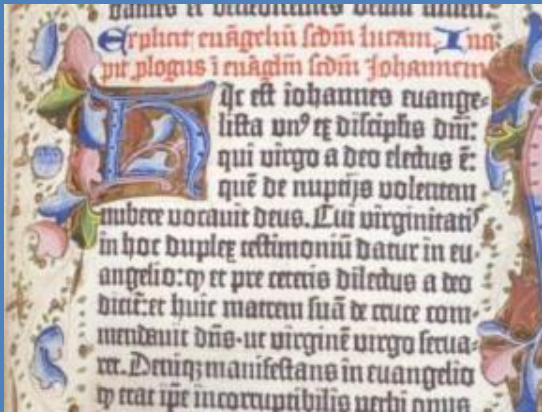 dantes et benedicentes deum amen.
Explicit euāgeliū scdm̄ lucam. Inci
pit ꝓlogus ī euāgliū scdm̄ Johannem
Hic est iohannes euange-
lista vnꝰ ex discipl̄is dn̄i:
qui virgo a deo electus ē:
quē de nuptijs volentem
nubere vocauit deus. Cui virginitatꝭ
in hoc duplex testimoniū datur in eu-
angelio: ꝙ et pre ceteris dilectus a deo
dicit̄: et huic matrem suā de cruce com-
mendauit dn̄s· ut virginē virgo serua-
ret. Deniqꝫ manifestans in euangelio
ꝙ erat ip̄e incorruptibilis verbi opus